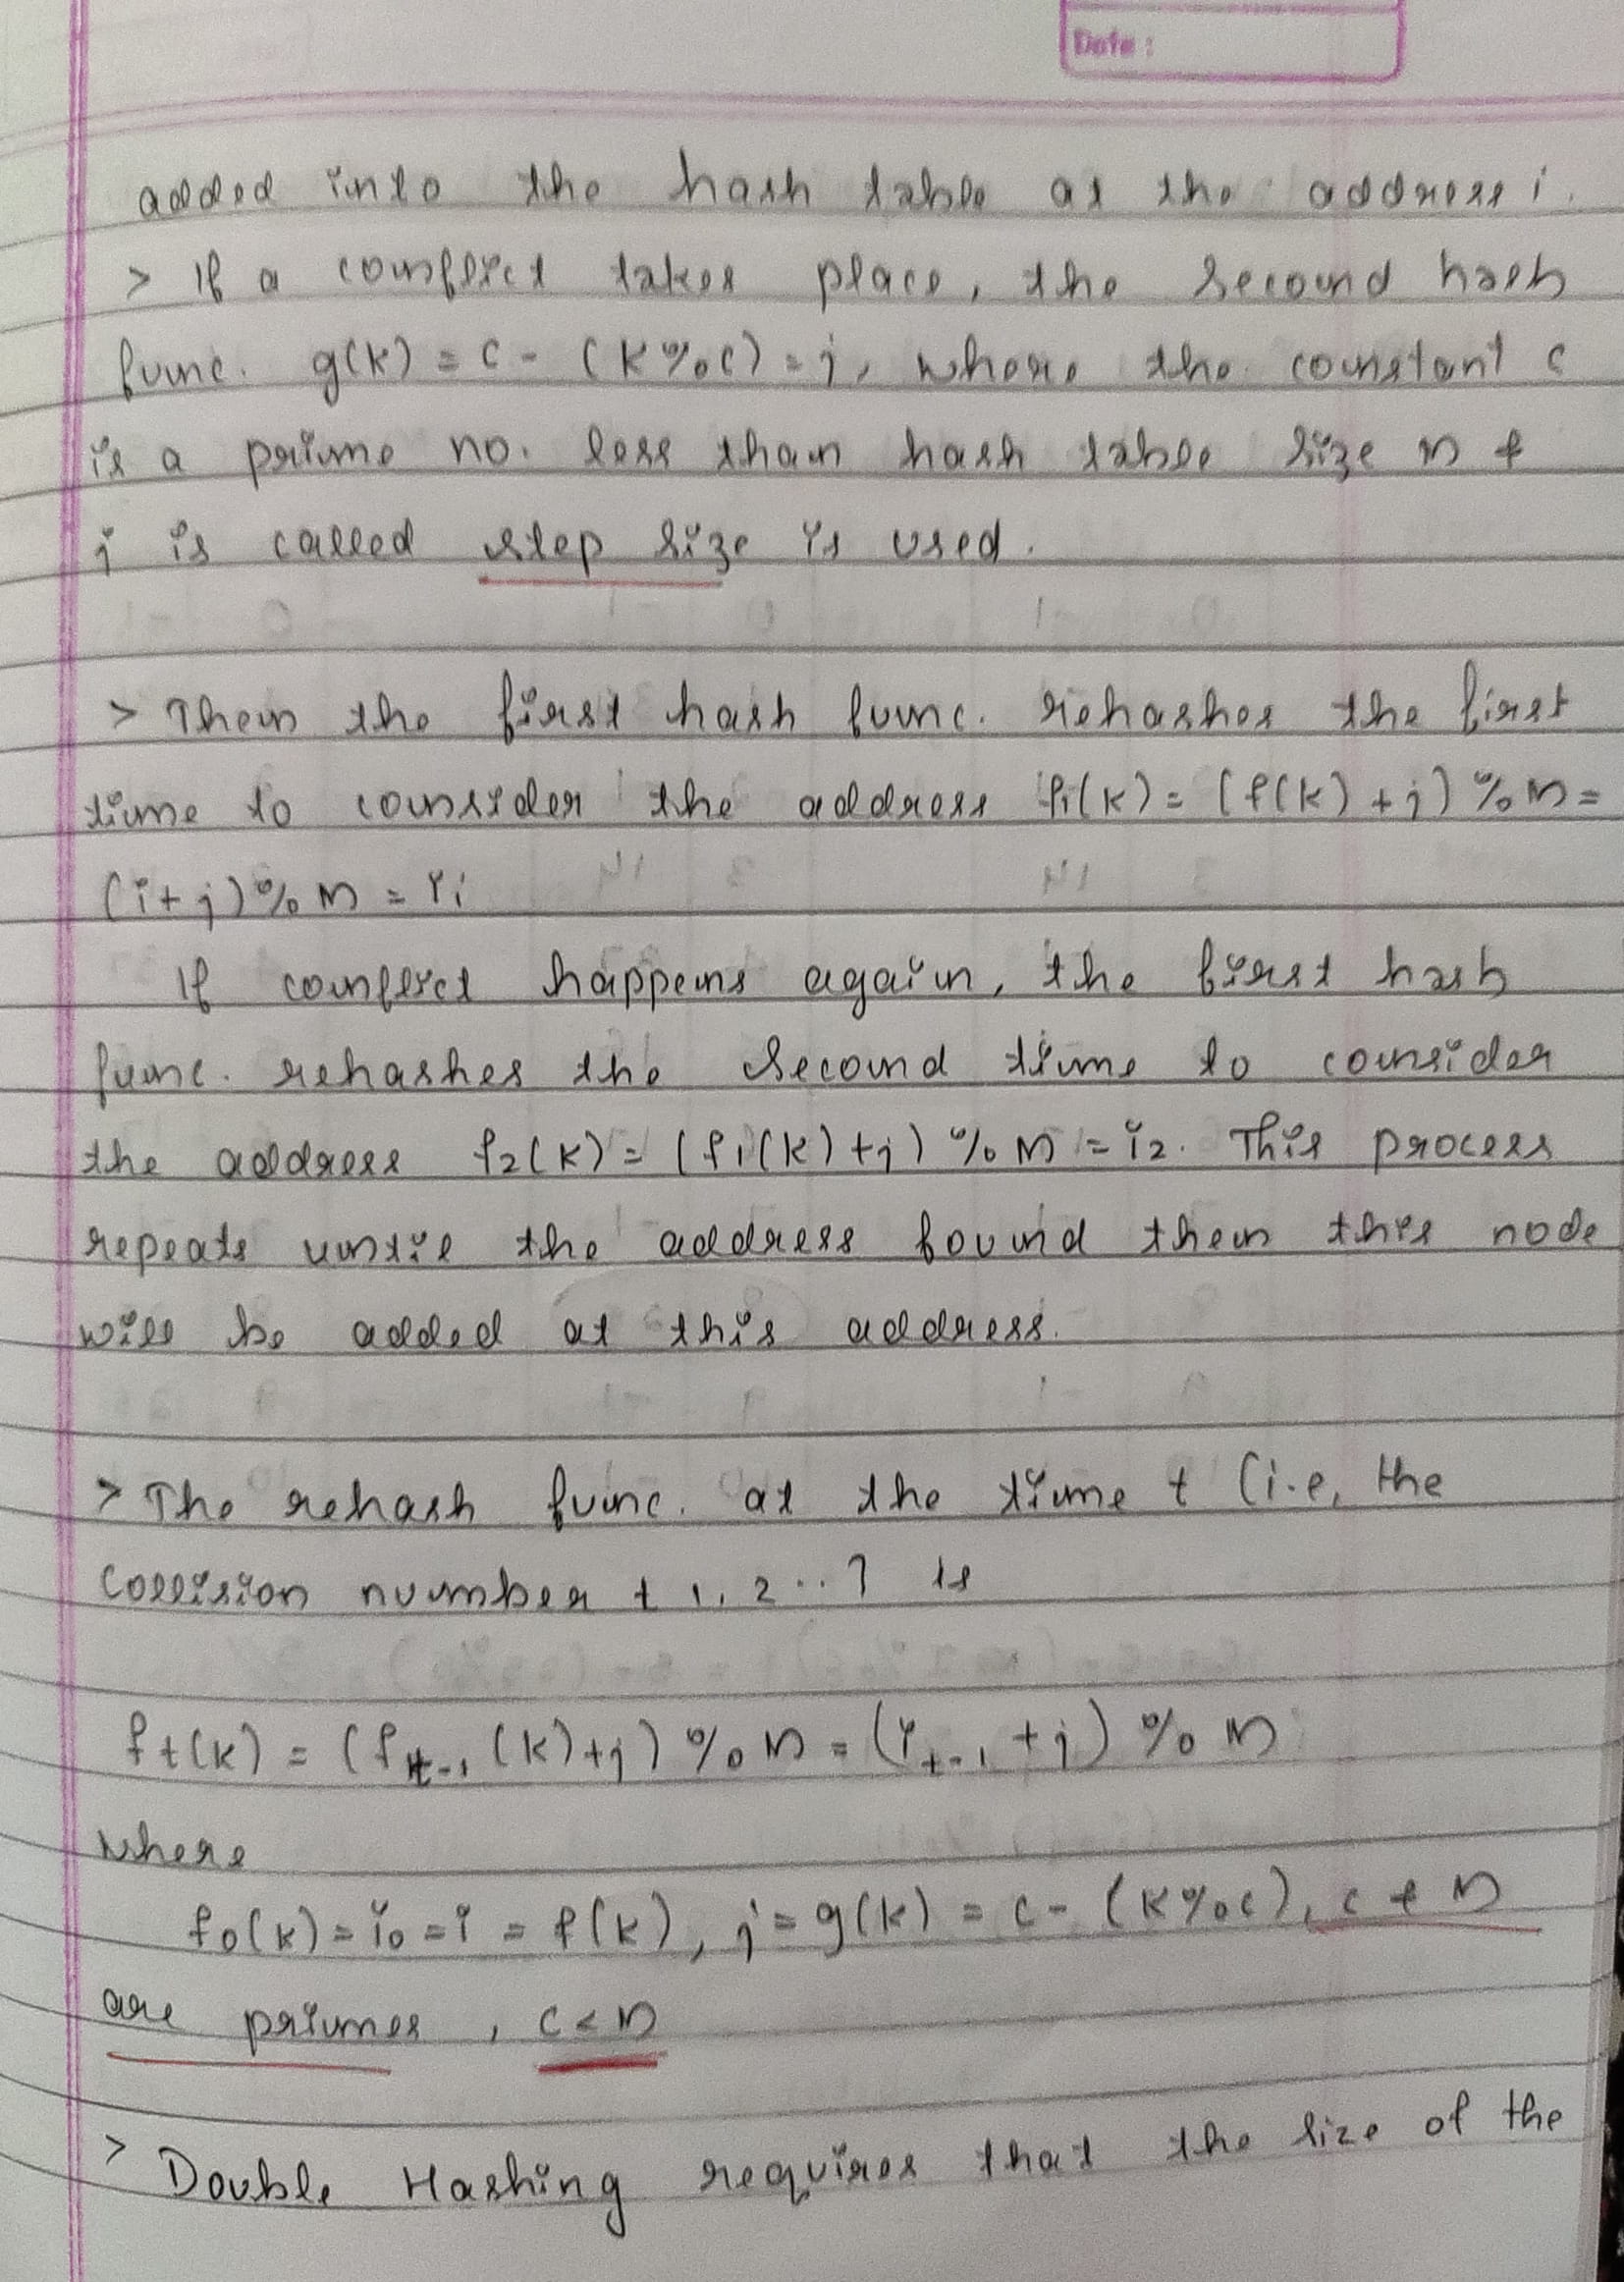 Date :
added into the hash table at the address i.
> If a conflict takes place, the second hash
func. g(k) = c - (k%c) = j, where the constant c
is a prime no. less than hash table size n &
j is called step size is used.
> Then the first hash func. rehashes the first
time to consider the address f₁(k) = (f(k) + j) % n =
(i+j)% n = i₁
If conflict happens again, the first hash
func. rehashes the second time to consider
the address f₂(k) = (f₁(k) + j) % n = i₂. This process
repeats until the address found then this node
will be added at this address.
> The rehash func. at the time t (i.e, the
collision number t 1, 2 ..) is
fₜ(k) = (fₜ₋₁ (k)+j) % n = (iₜ₋₁ + j) % n
where
f₀(k) = i₀ = i = f(k), j = g(k) = c - (k%c), c & n
are primes , c < n
> Double Hashing requires that the size of the